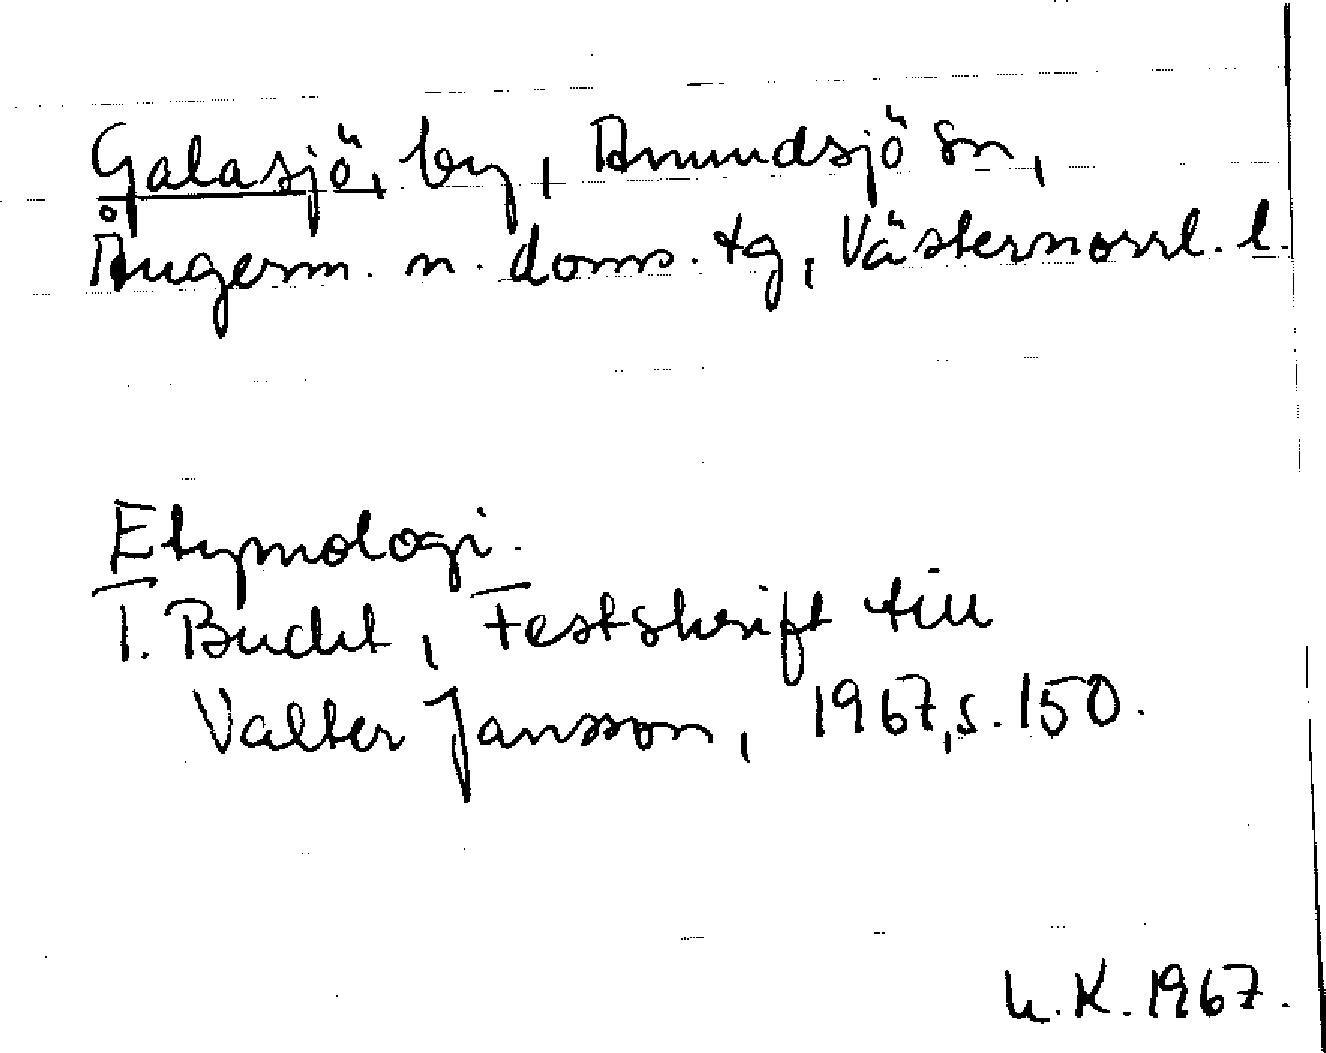 Galasjö, by, Anundsjö sn,
Ångerm. n. doms. tg, Västernorrl. l.
Etymologi.
T. Bucht, Festskrift till
Valter Jansson, 1967, s. 150.
U.K. 1967.